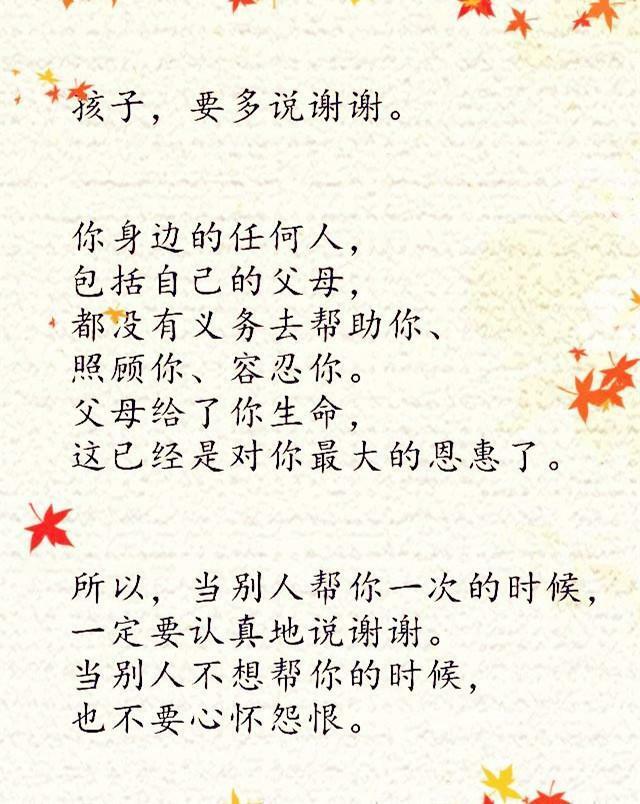 孩子，要多说谢谢。
你身边的任何人，
包括自己的父母，
都没有义务去帮助你、
照顾你、容忍你。
父母给了你生命，
这已经是对你最大的恩惠了。
所以，当别人帮你一次的时候，
一定要认真地说谢谢。
当别人不想帮你的时候，
也不要心怀怨恨。